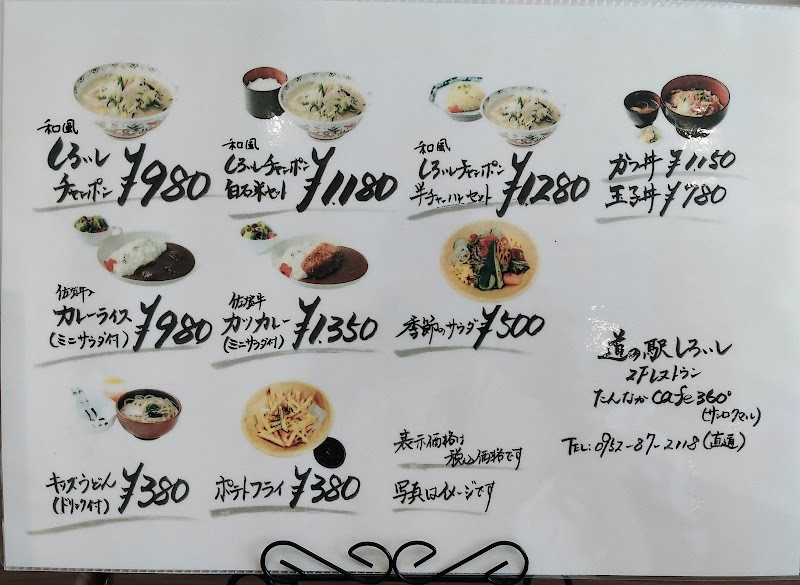 和風
しろいし
チャンポン ¥980
和風
しろいしチャンポン
白石米セット ¥1,180
和風
しろいしチャンポン
半チャーハンセット ¥1,280
カツ丼 ¥1,150
玉子丼 ¥780
佐賀牛
カレーライス
(ミニサラダ付) ¥980
佐賀牛
カツカレー
(ミニサラダ付) ¥1,350
季節のサラダ ¥500
キッズうどん
(ドリンク付) ¥380
ポテトフライ ¥380
表示価格は
税込価格です
写真はイメージです
道の駅しろいし
2Fレストラン
たんなかcafe360°
(サンロクマル)
TEL:0952-87-2118(直通)